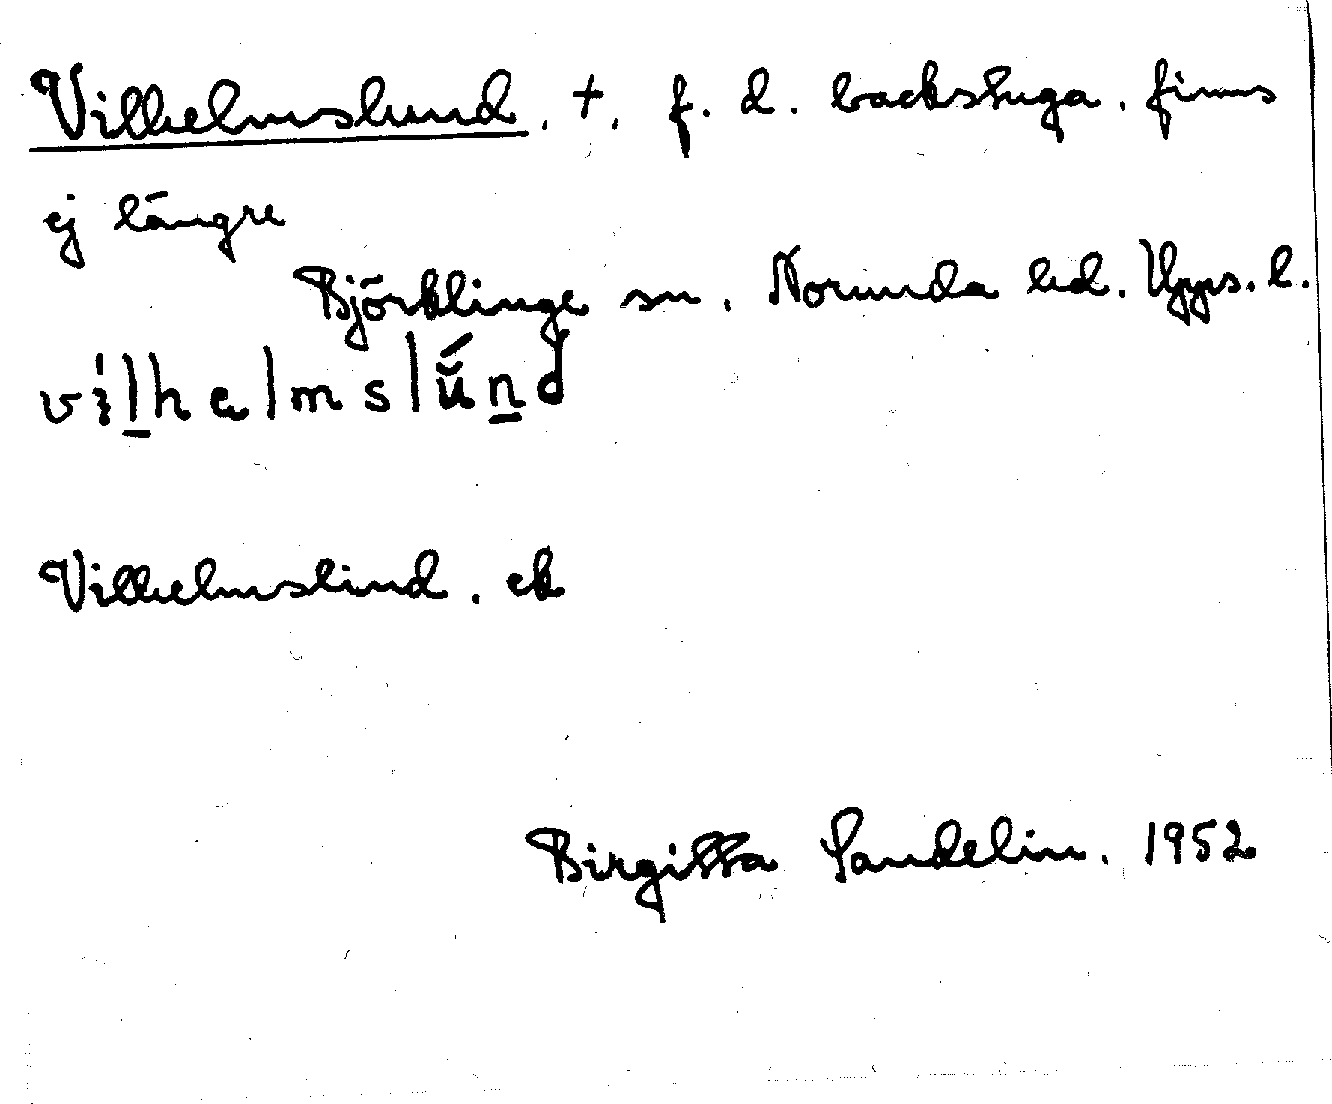 Vilhelmslund, †, f. d. backstuga. finns
ej längre
Björklinge sn, Norunda hd. Upps. l.
vilhelmslund
Vilhelmslund. ek
Birgitta Sandelin. 1952